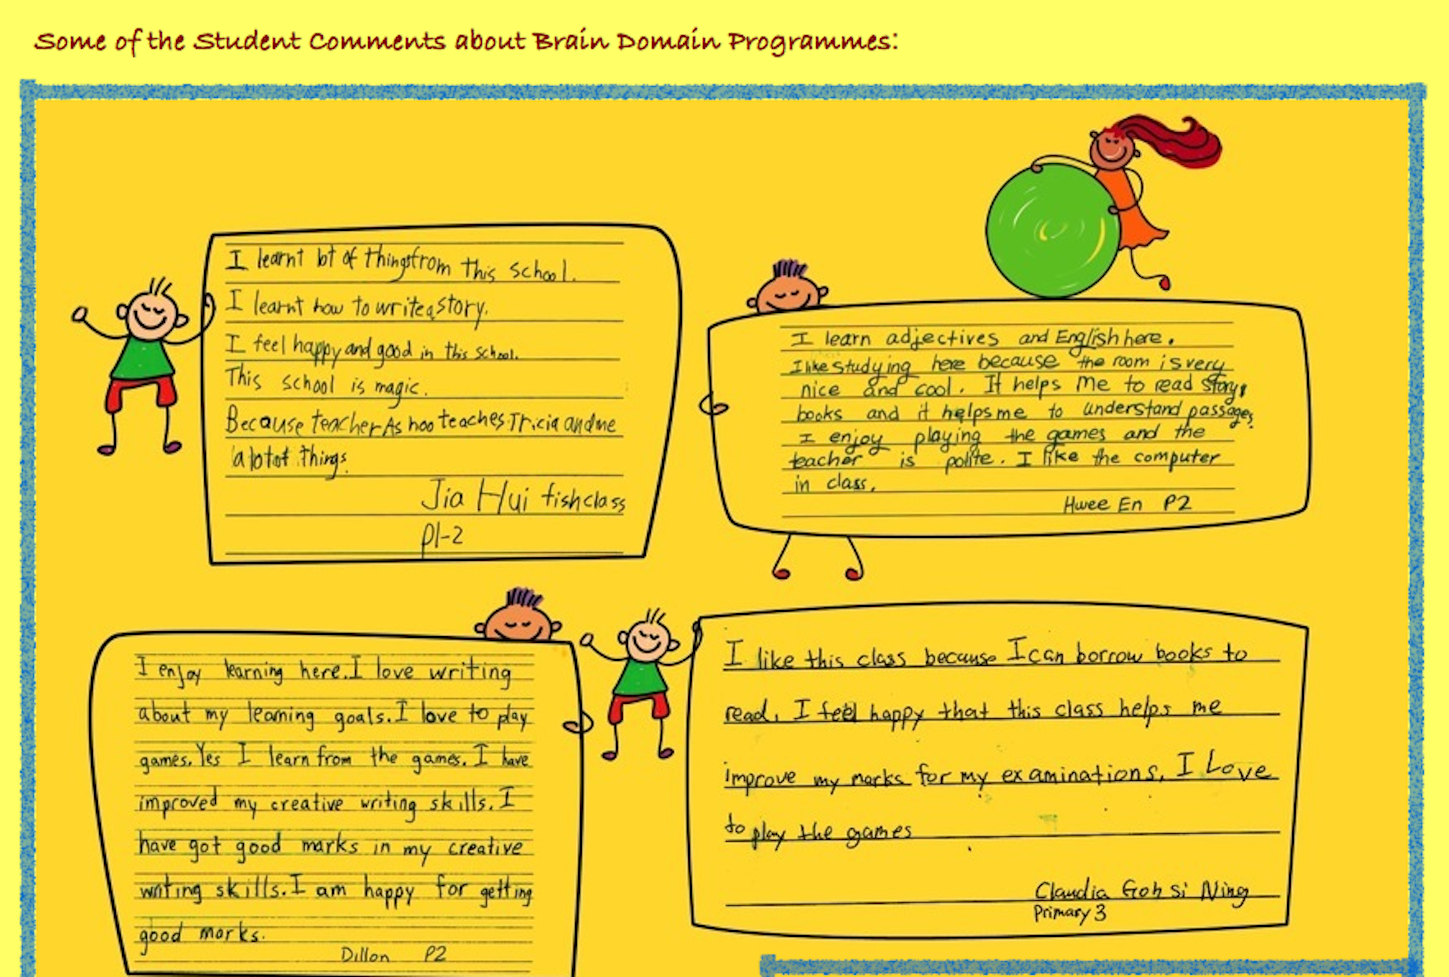 Some of the Student Comments about Brain Domain Programmes:
I learnt lot of things from this school.
I learnt how to write a story.
I feel happy and good in this school.
This school is magic.
Because teacher As hoo teaches Tricia and me
a lot of things.
Jia Hui fish class
P1-2
I learn adjectives and English here.
I like studying here because the room is very
nice and cool. It helps me to read story
books and it helps me to understand passages.
I enjoy playing the games and the
teacher is polite. I like the computer
in class.
Hwee En P2
I enjoy learning here. I love writing
about my learning goals. I love to play
games. Yes I learn from the games. I have
improved my creative writing skills. I
have got good marks in my creative
writing skills. I am happy for getting
good marks.
Dillon P2
I like this class because I can borrow books to
read. I feel happy that this class helps me
improve my marks for my examinations. I Love
to play the games
Claudia Goh Si Ning
Primary 3